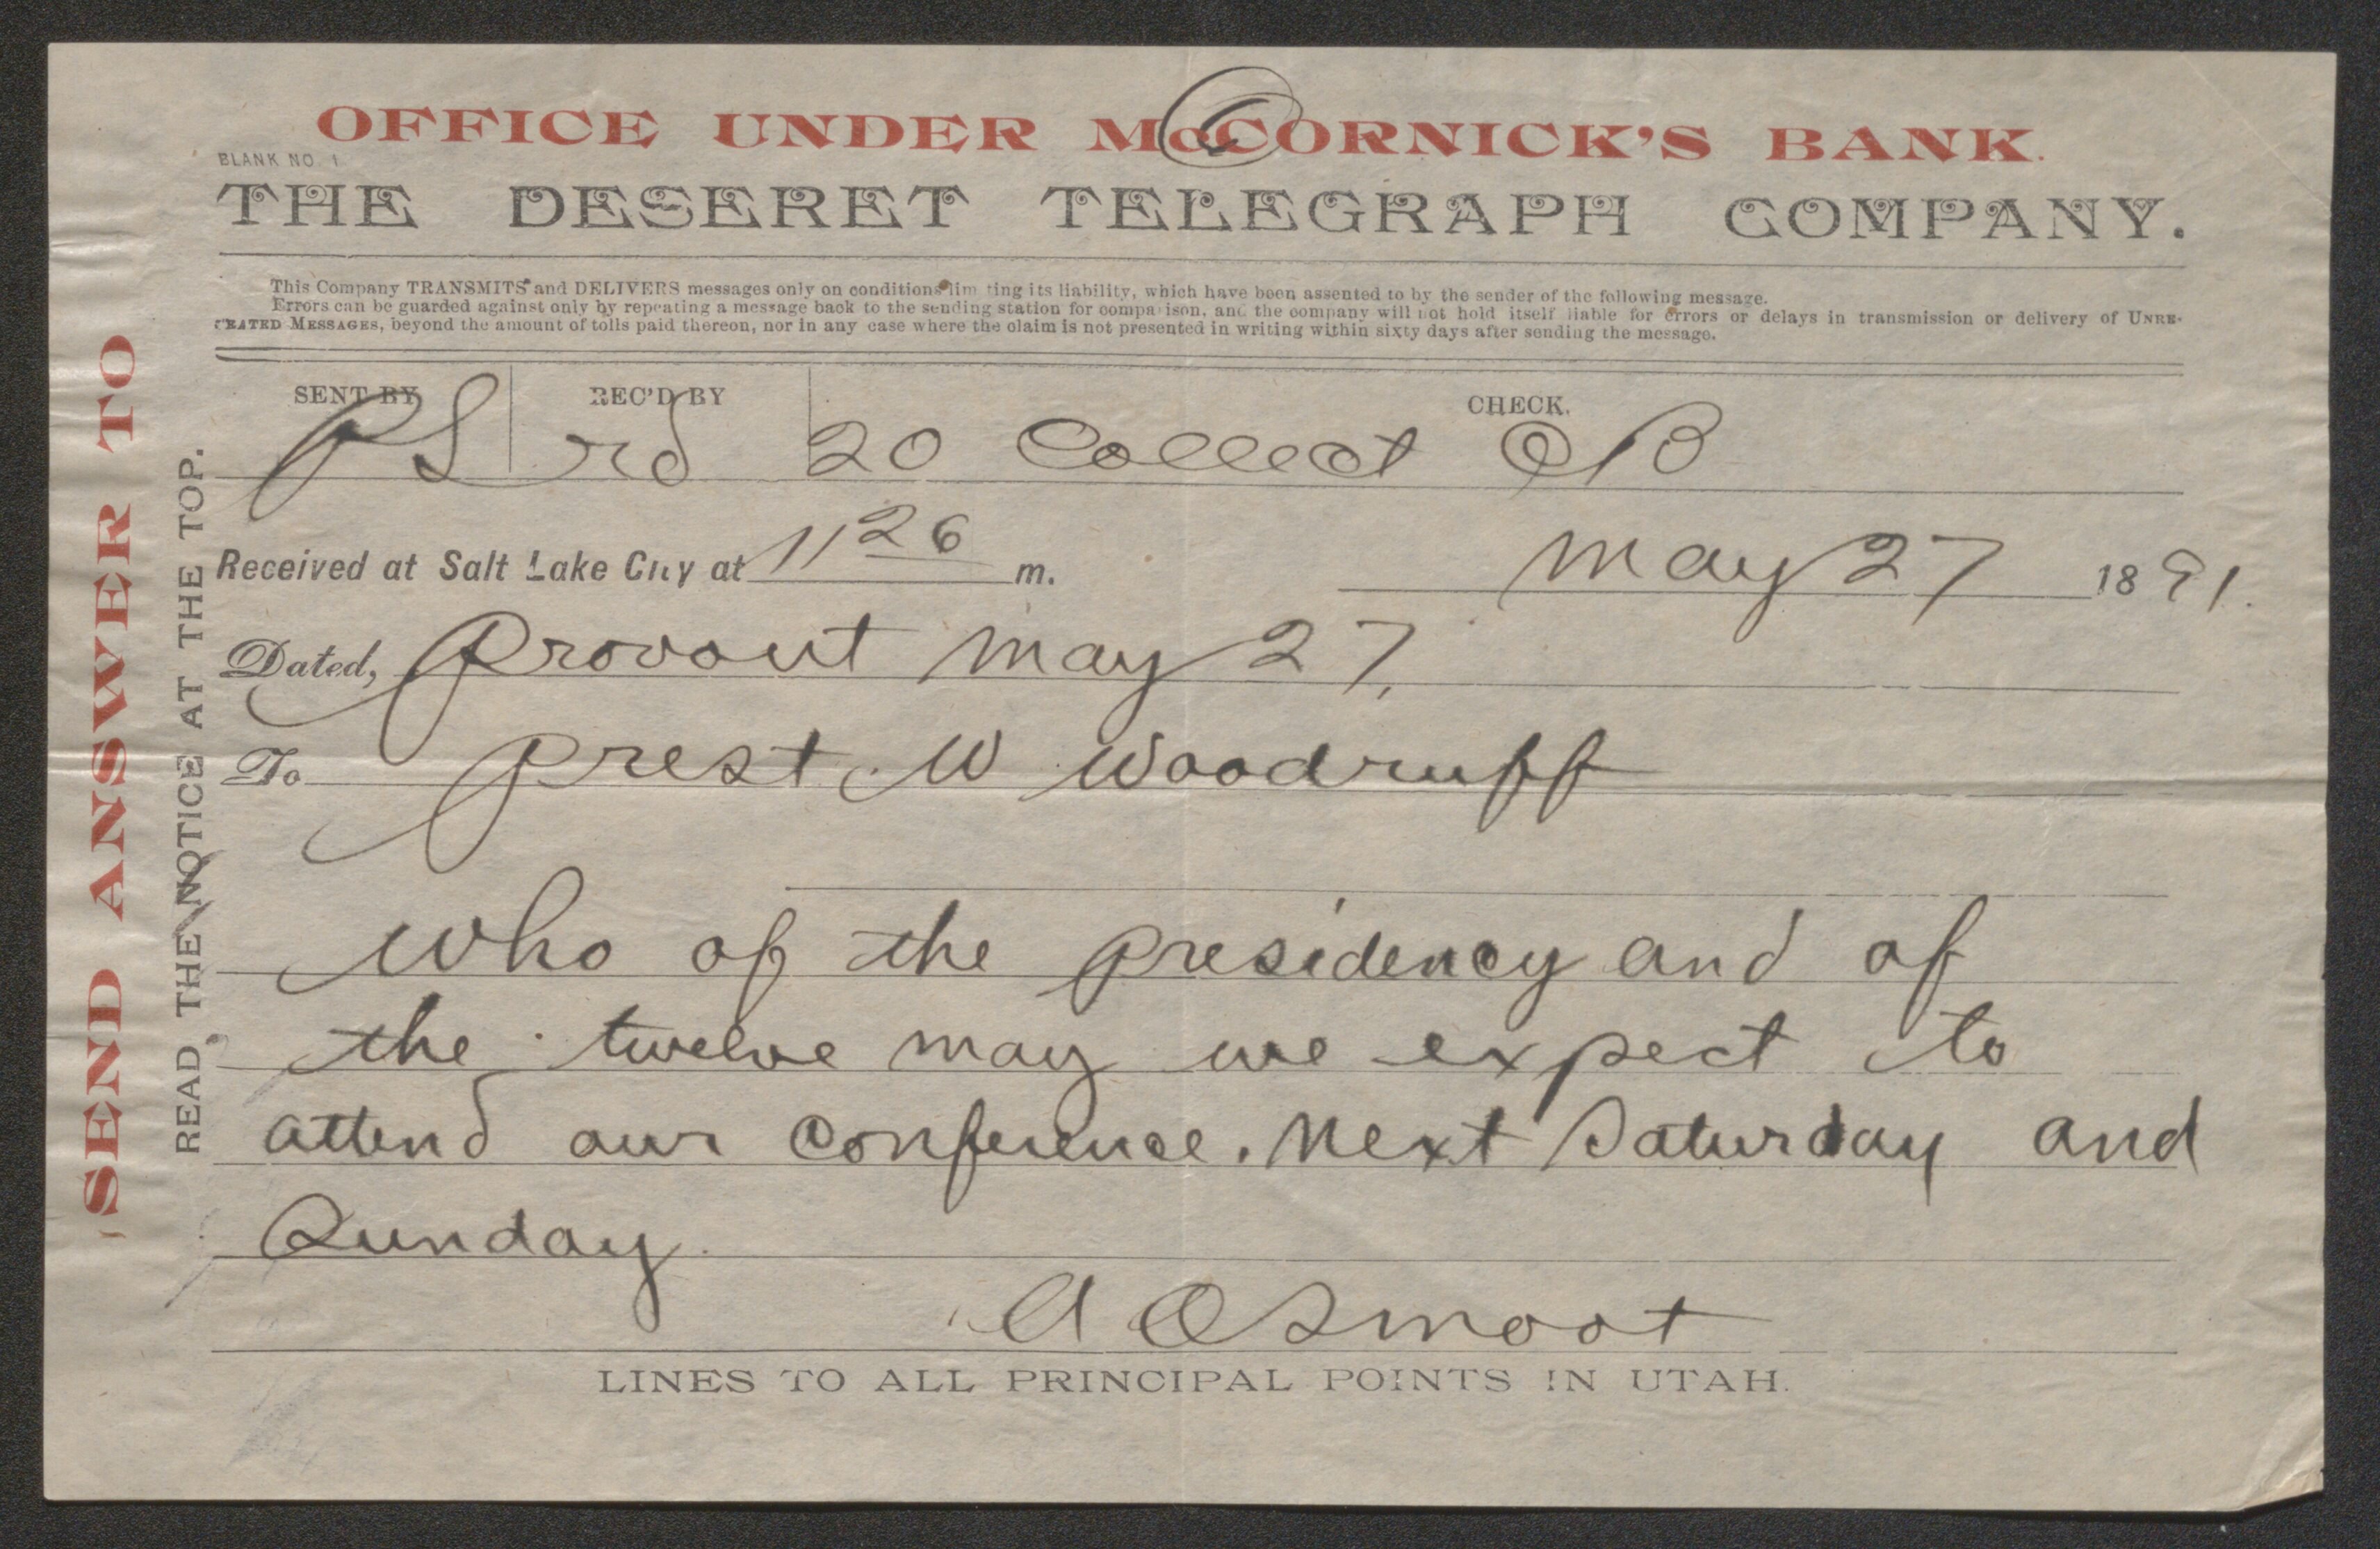 OFFICE UNDER McCORNICK'S BANK.
BLANK NO. 1
THE DESERET TELEGRAPH COMPANY.
This Company TRANSMITS and DELIVERS messages only on conditions lim ting its liability, which have been assented to by the sender of the following message.
Errors can be guarded against only by repeating a message back to the sending station for comparison, and the company will not hold itself liable for errors or delays in transmission or delivery of UNRE-
PEATED MESSAGES, beyond the amount of tolls paid thereon, nor in any case where the claim is not presented in writing within sixty days after sending the message.
SENT BY REC'D BY CHECK.
PS rd 20 Collect
Received at Salt Lake City at 11 26 m. May 27 1891.
Dated, Provout May 27,
To Prest W Woodruff
Who of the presidency and of
the twelve may we expect to
attend our conference. Next Saturday and
Sunday.
A O Smoot
LINES TO ALL PRINCIPAL POINTS IN UTAH.
SEND ANSWER TO
READ THE NOTICE AT THE TOP.